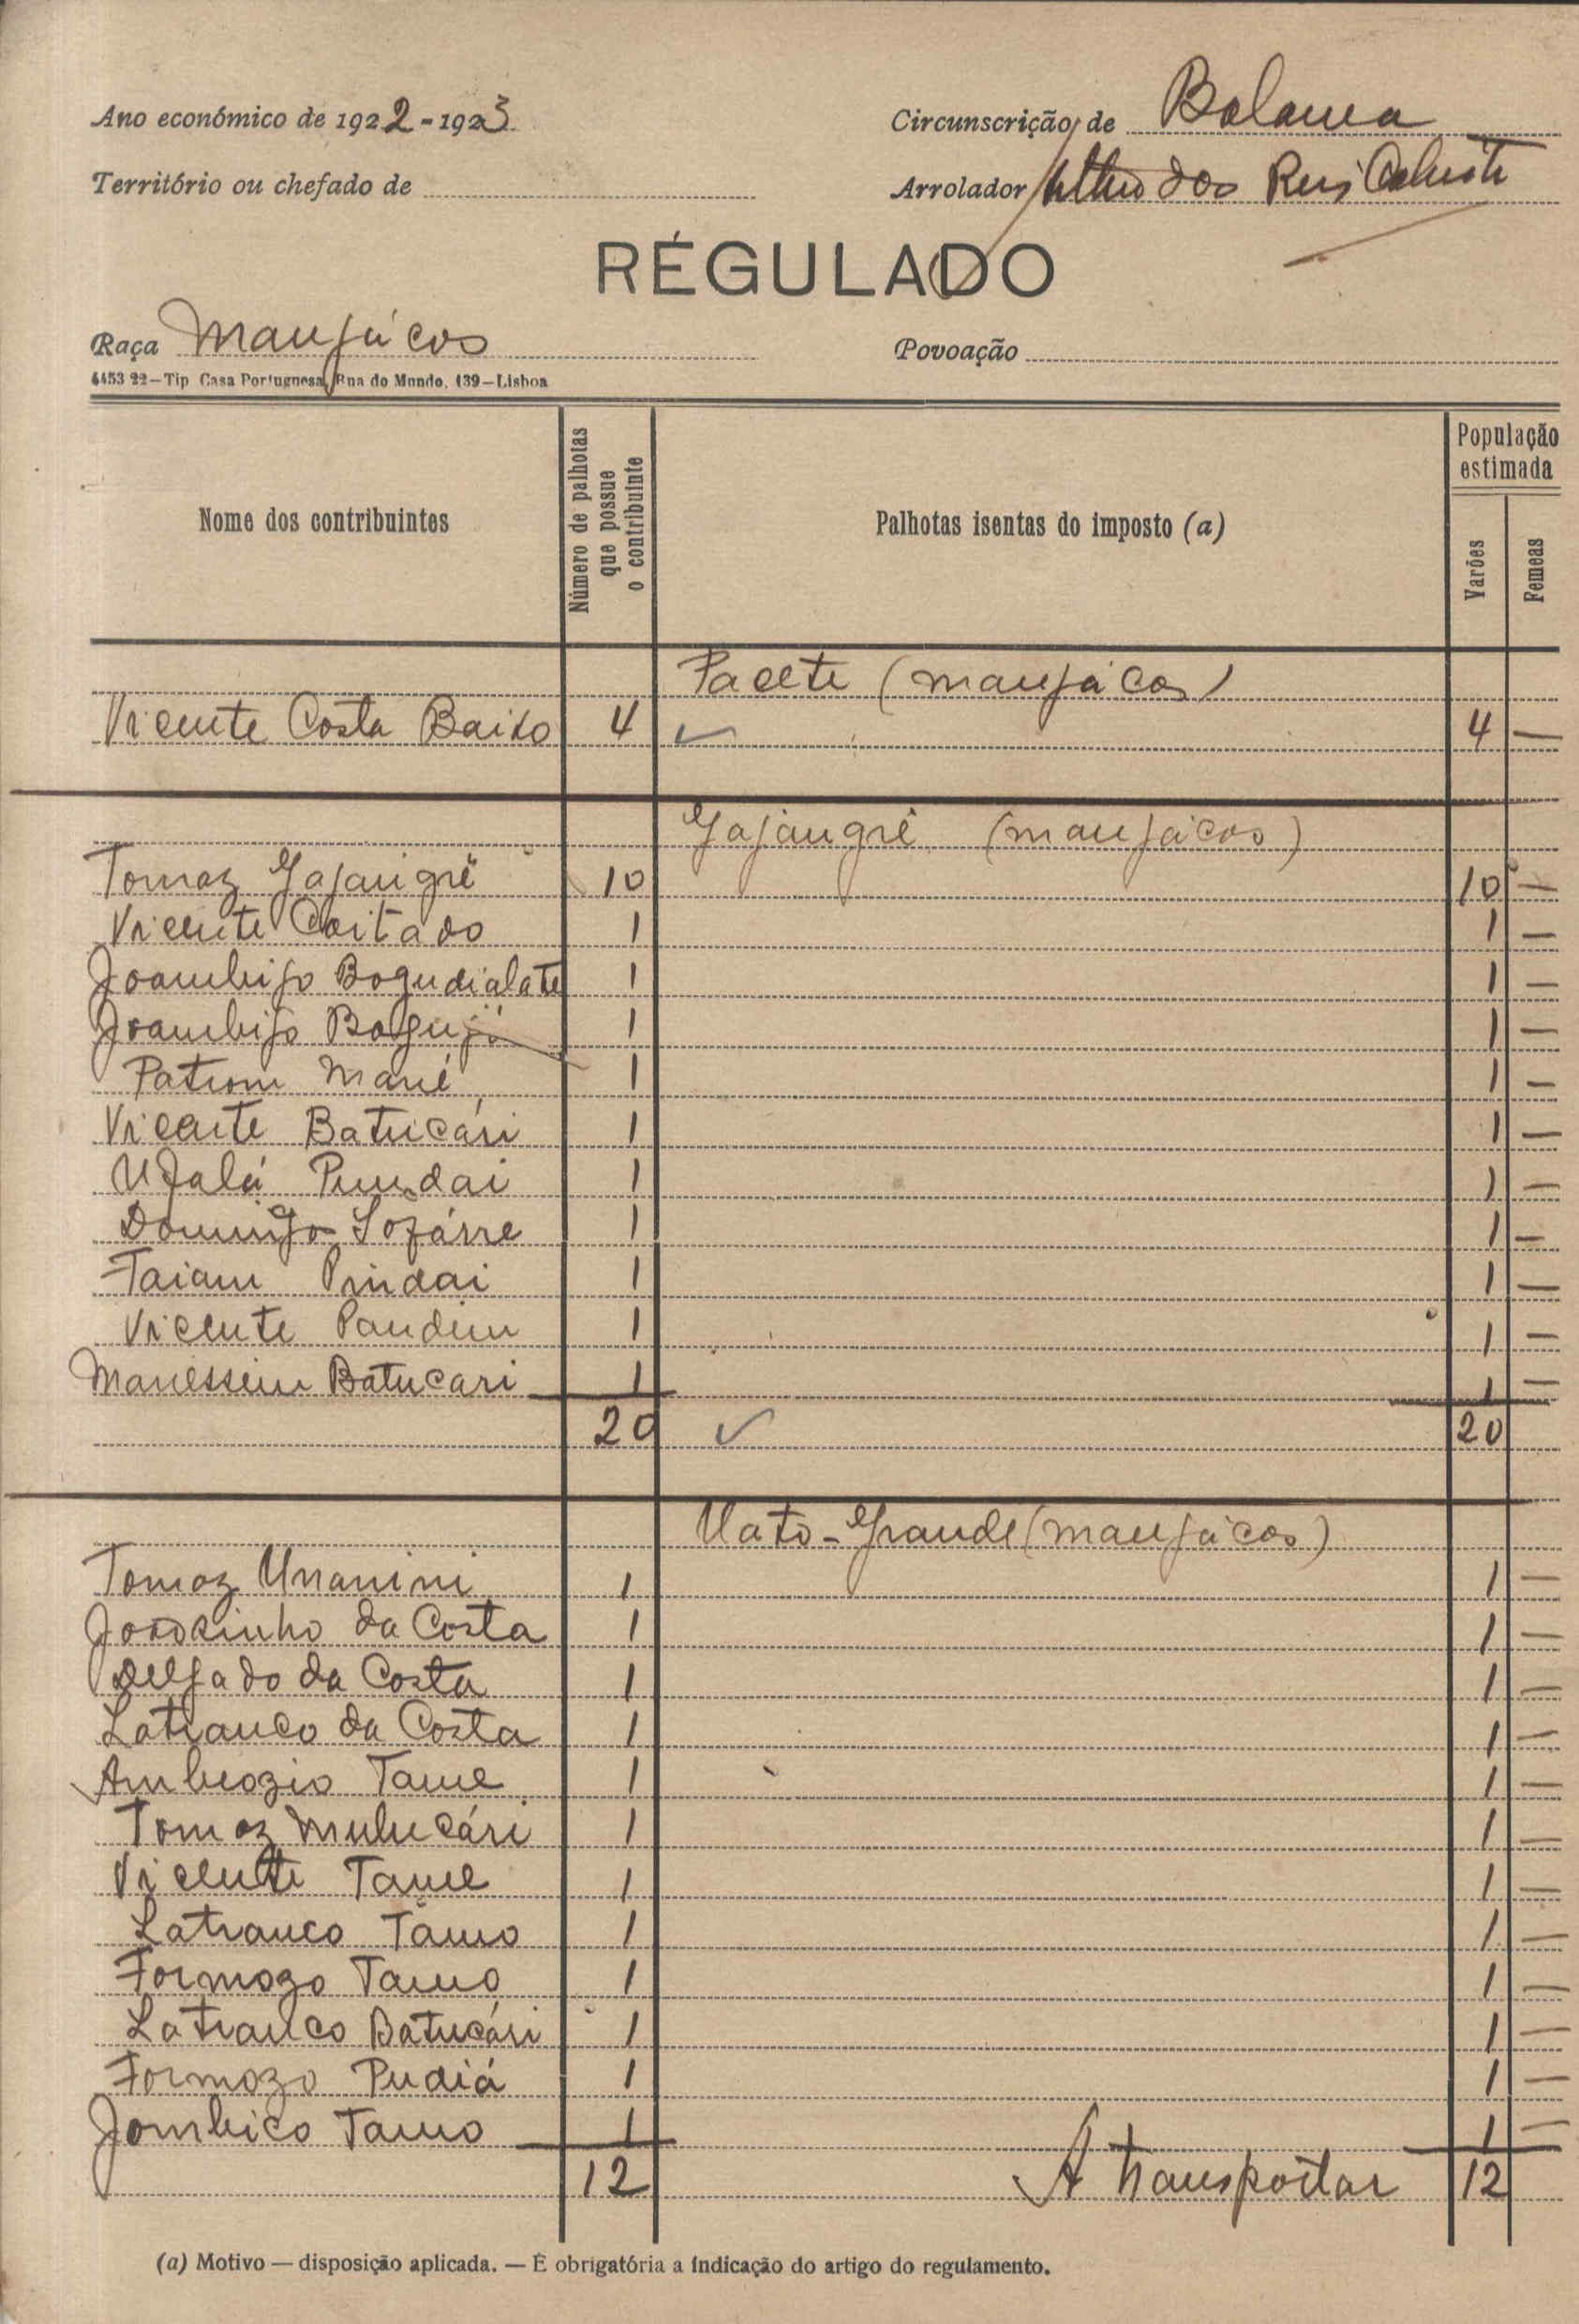 Ano económico de 1922-1923
Circunscrição de Bolama
Território ou chefado de
Arrolador dos Reis
RÉGULADO
Raça Manjácos
Povoação
4453 22—Tip Casa Portuguesa, Rua do Mundo, 139—Lisboa
Nome dos contribuintes
Número de palhotas que possue o contribuinte
Palhotas isentas do imposto (a)
População estimada
Varões
Femeas
Pacete (manjácos)
Vicente Costa Baixo 4 ✓ 4 —
Gajangrê (manjácos)
Tomaz Gajangrê 10 10 —
Vicente Coitado 1 1 —
Joambijo Bogudialate 1 1 —
Joambijo 1 1 —
Patrom Mané 1 1 —
Vicente Batucári 1 1 —
Ufalá Pundai 1 1 —
Domingo 1 1 —
Taiam Pindai 1 1 —
Vicente Pandim 1 1 —
Manessem Batucari 1 1 —
20 ✓ 20
Mato-Grande (manjácos)
Tomaz Unanini 1 1 —
Joãosinho da Costa 1 1 —
Delfado da Costa 1 1 —
Latranco da Costa 1 1 —
Ambrozio Tame 1 1 —
Tomaz Mulucári 1 1 —
Vicente Tame 1 1 —
Latranco Tamo 1 1 —
Formozo Tamo 1 1 —
Latranco Batucári 1 1 —
Formozo Pudiá 1 1 —
Jombico Tamo 1 1 —
12 A transportar 12
(a) Motivo — disposição aplicada. — É obrigatória a indicação do artigo do regulamento.